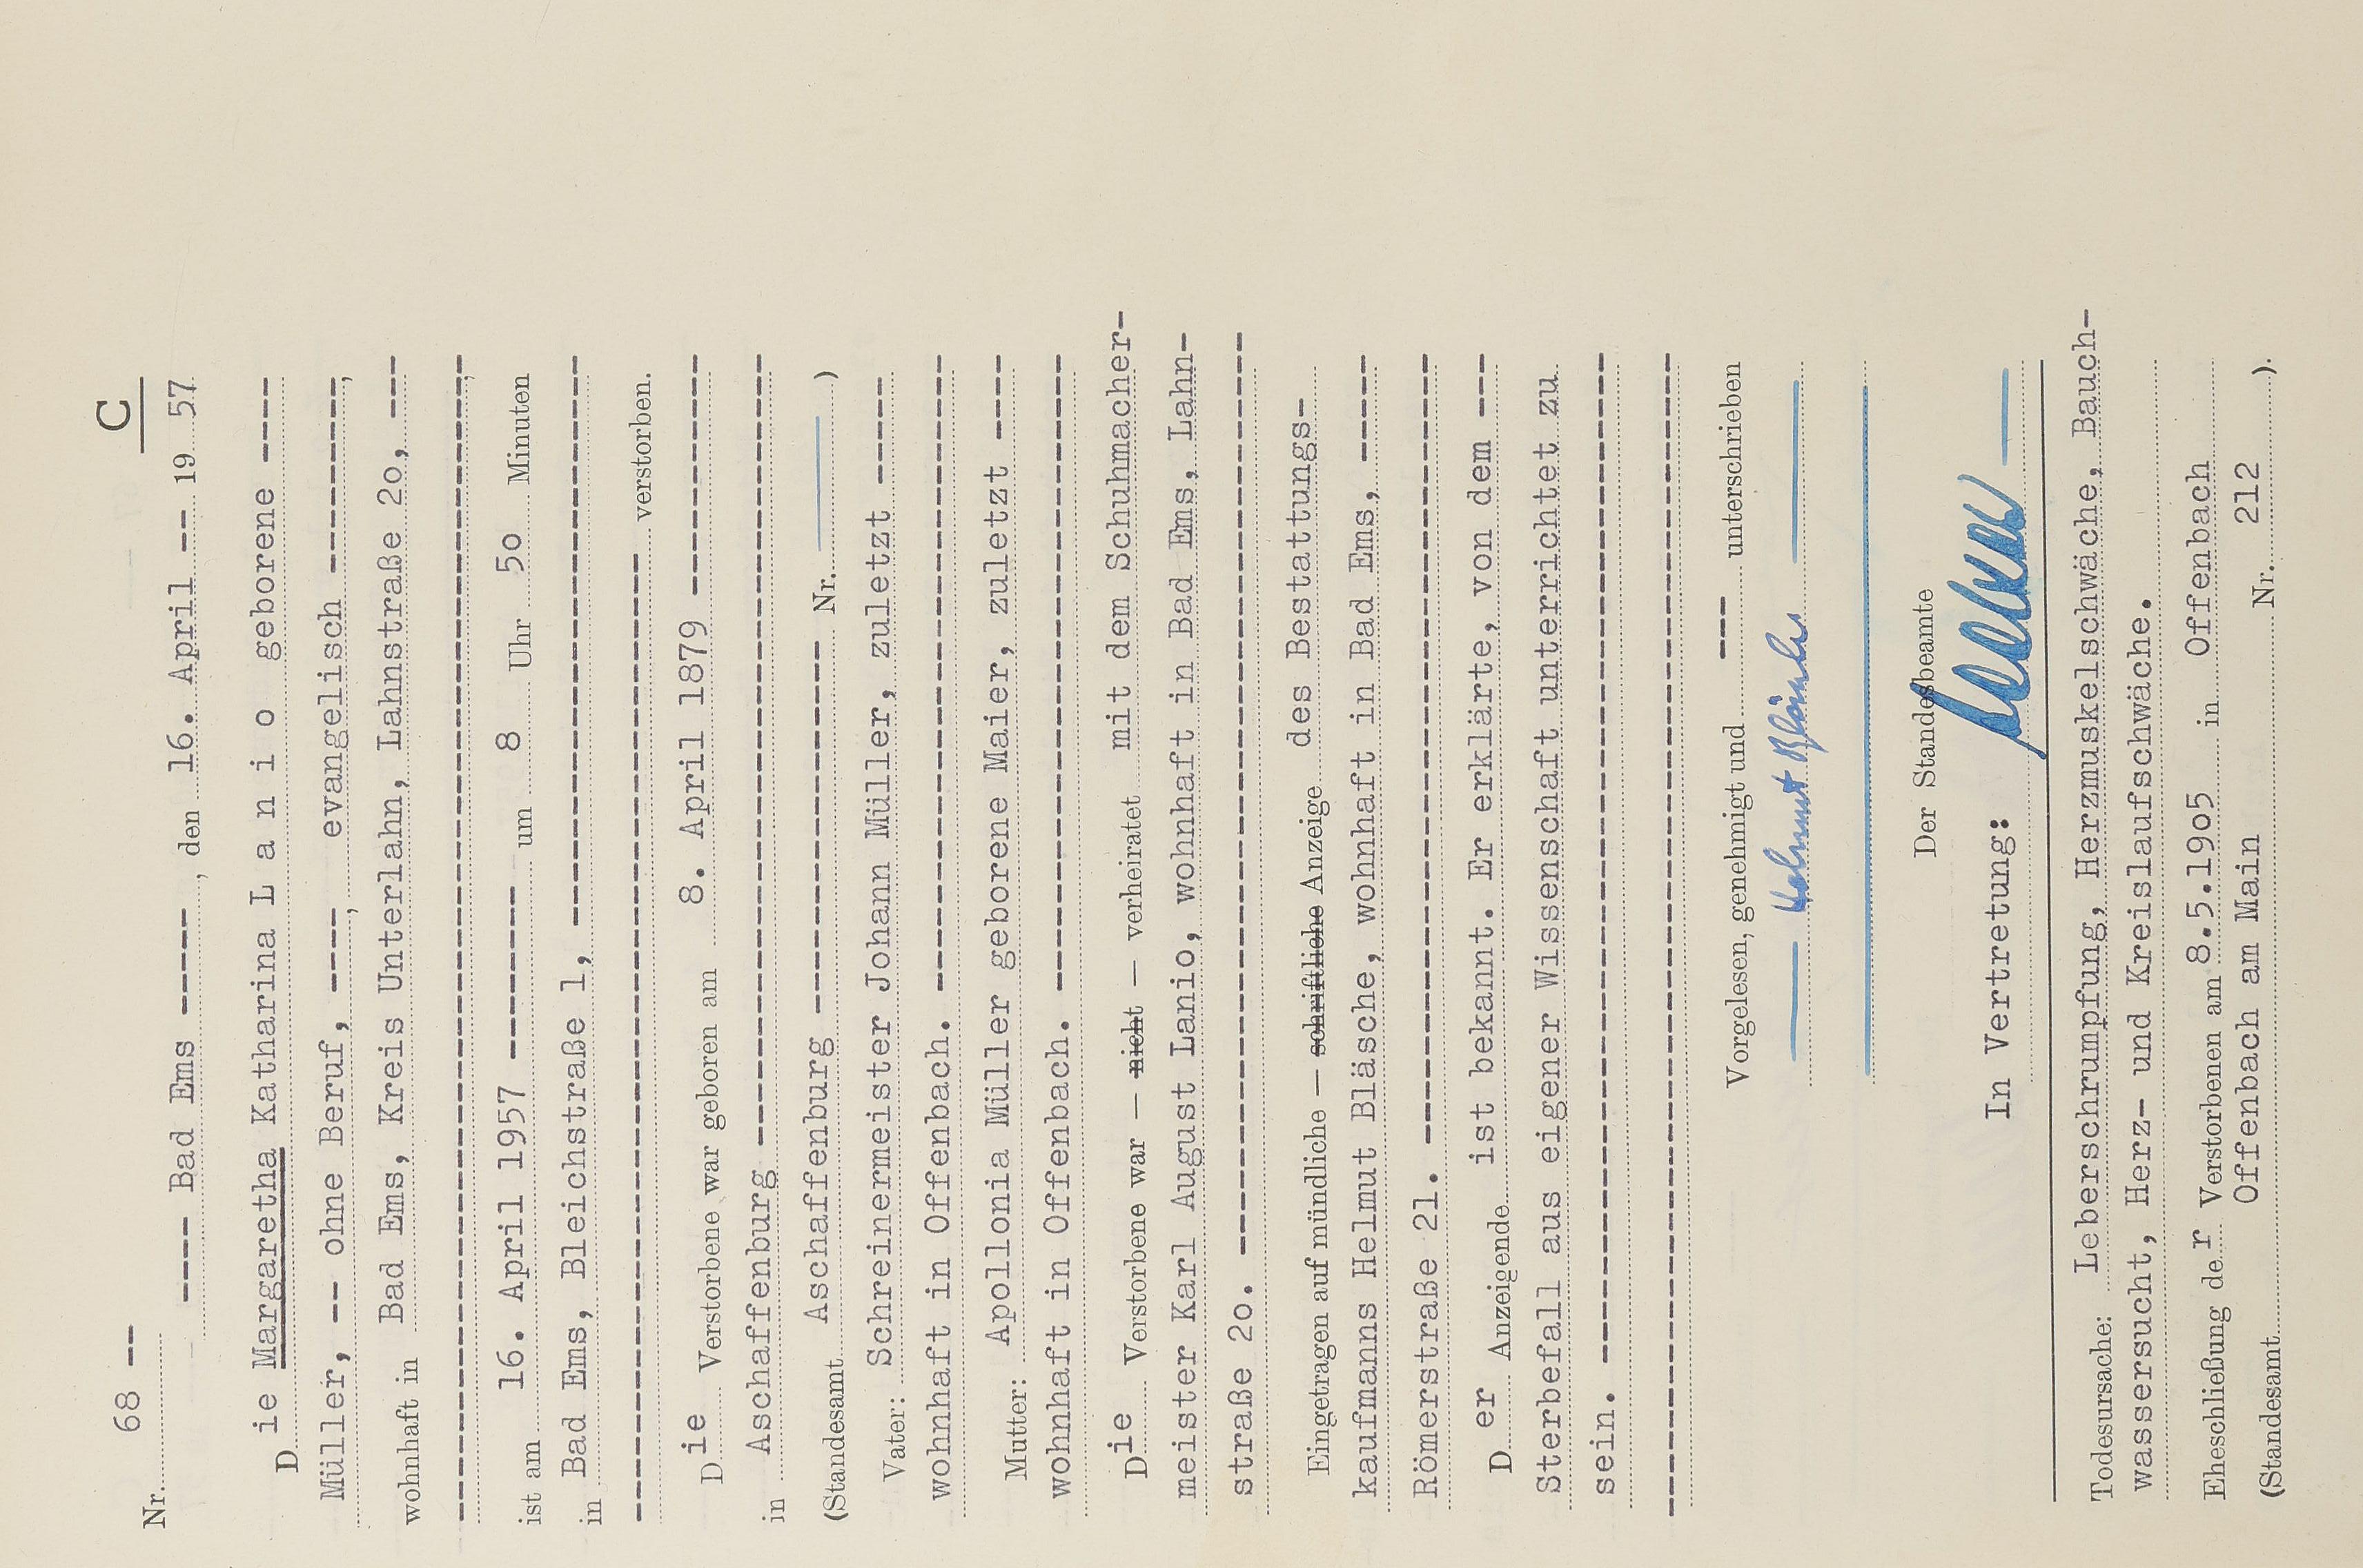 C
Nr. 68 --
---- Bad Ems -----, den 16. April -- 19 57
Die Margaretha Katharina L a n i o geborene ----
Müller, -- ohne Beruf, ----, evangelisch ---------,
wohnhaft in Bad Ems, Kreis Unterlahn, Lahnstraße 2o, ---
---------------------------------------------,
ist am 16. April 1957 -------- um 8 Uhr 5o Minuten
in Bad Ems, Bleichstraße 1, ----------------------
--------------------------------------- verstorben.
Die Verstorbene war geboren am 8. April 1879 ----------
in Aschaffenburg -------------------------------
(Standesamt Aschaffenburg --------------- Nr. — )
Vater: Schreinermeister Johann Müller, zuletzt -----
wohnhaft in Offenbach. --------------------------
Mutter: Apollonia Müller geborene Maier, zuletzt ----
wohnhaft in Offenbach. --------------------------
Die Verstorbene war — nicht — verheiratet mit dem Schuhmacher-
meister Karl August Lanio, wohnhaft in Bad Ems, Lahn-
straße 2o. -------------------------------------
Eingetragen auf mündliche — schriftliche Anzeige des Bestattungs-
kaufmanns Helmut Bläsche, wohnhaft in Bad Ems, -----
Römerstraße 21. --------------------------------
Der Anzeigende ist bekannt. Er erklärte, von dem ---
Sterbefall aus eigener Wissenschaft unterrichtet zu
sein. -----------------------------------------
-----------------------------------------------
Vorgelesen, genehmigt und --- unterschrieben
— Helmut Bläsche —
Der Standesbeamte
In Vertretung:
Todesursache: Leberschrumpfung, Herzmuskelschwäche, Bauch-
wassersucht, Herz- und Kreislaufschwäche.
Eheschließung der Verstorbenen am 8.5.19o5 in Offenbach
(Standesamt Offenbach am Main Nr. 212 ).